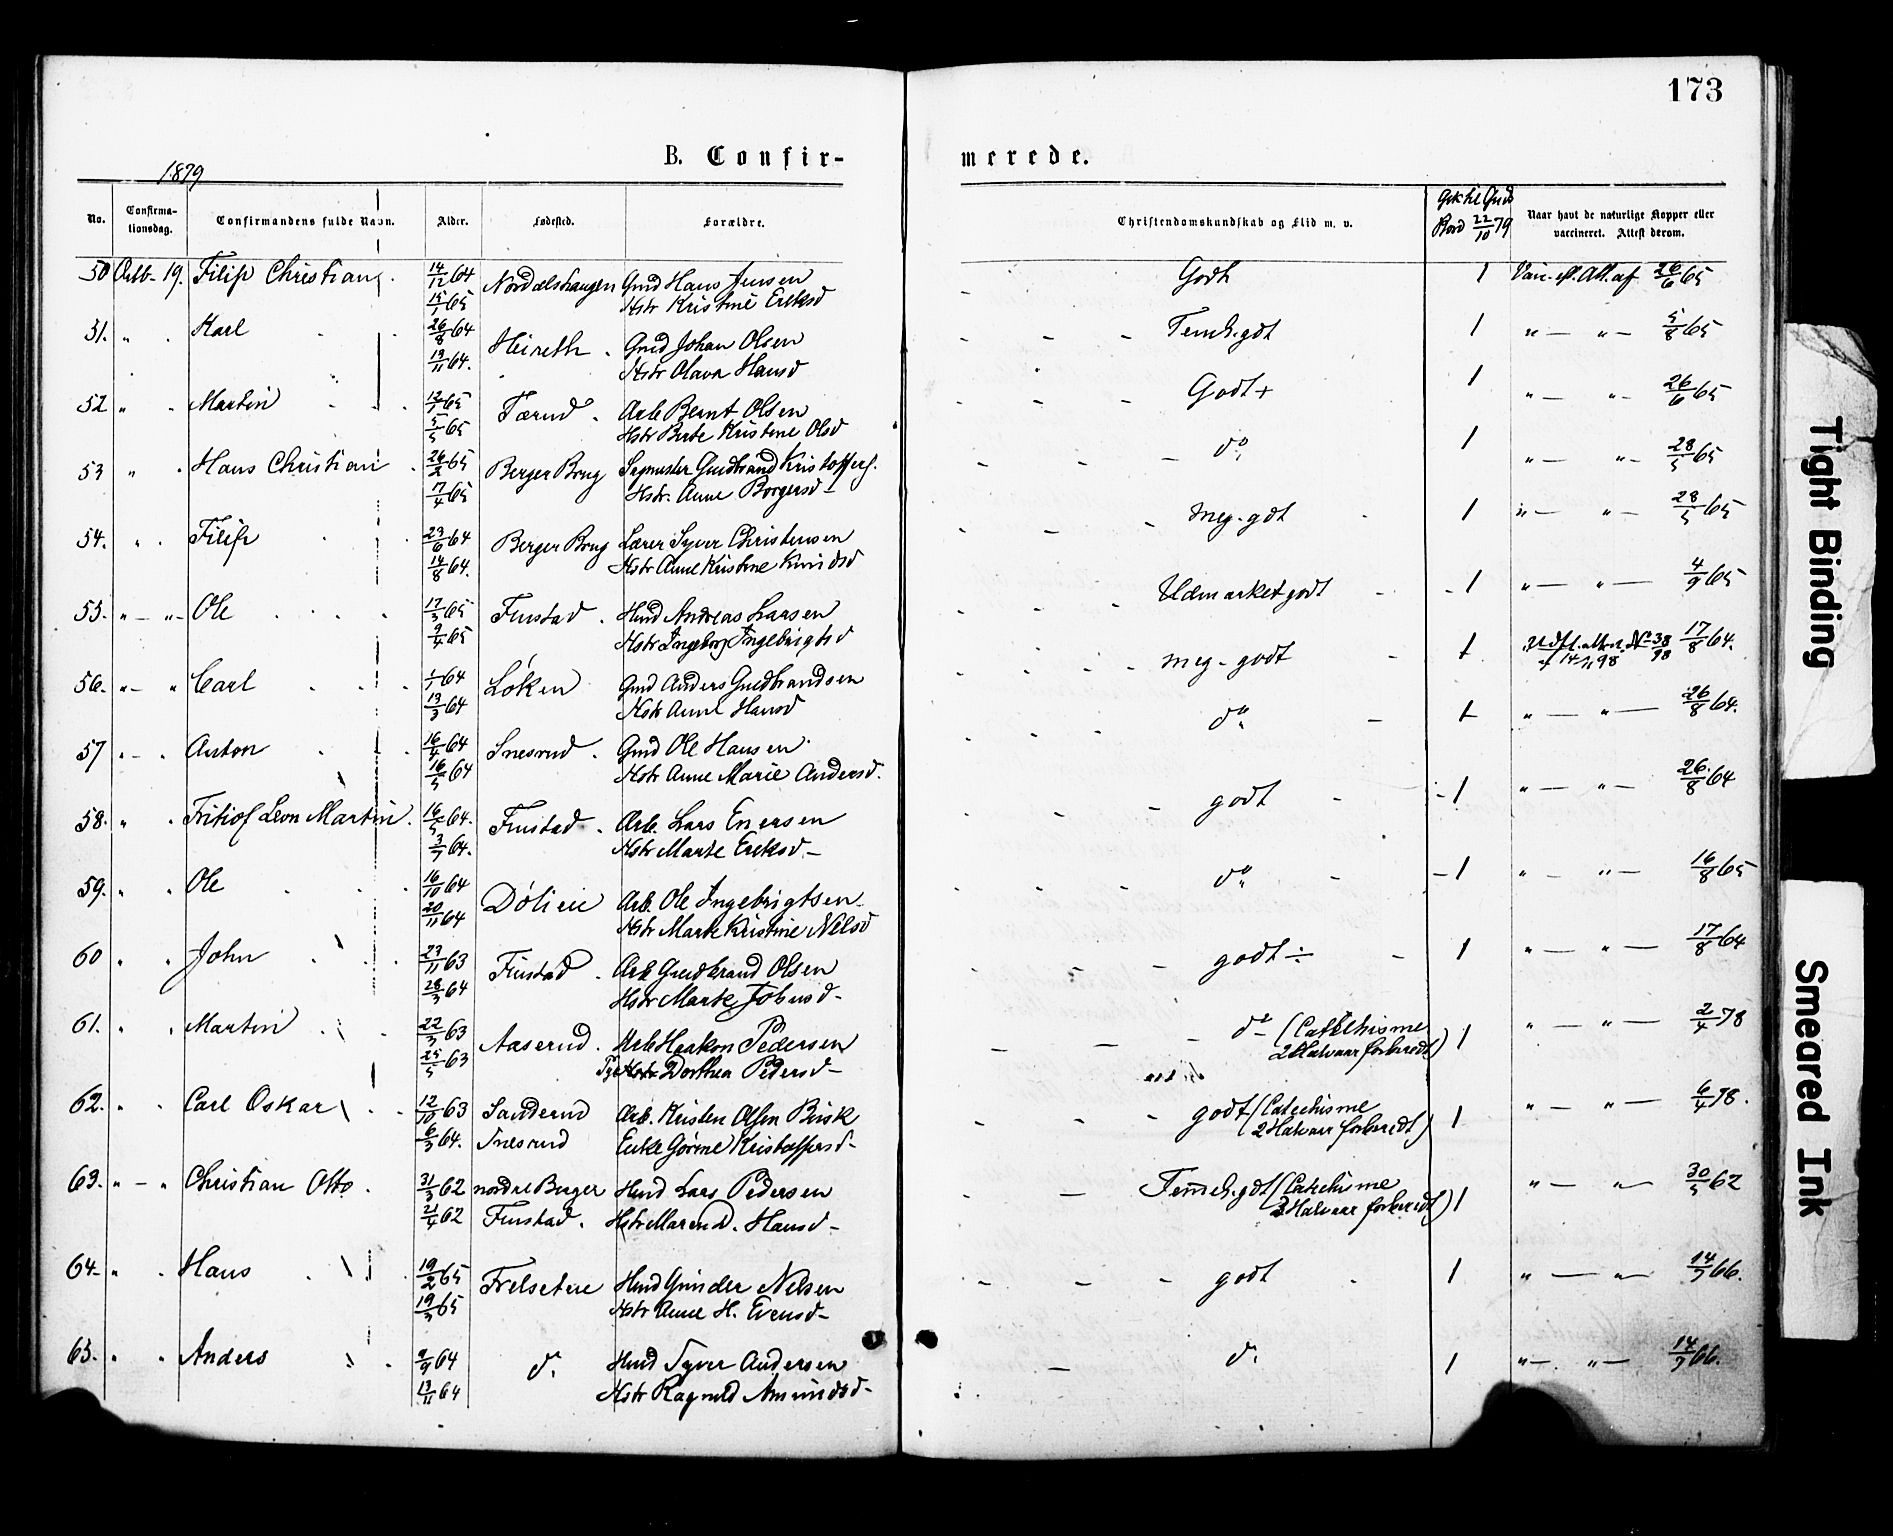 173
B. Confir-
merede.
1879
No.
Confirma-
tionsdag.
Confirmandens fulde Navn.
Alder.
Fødested.
Forældre.
Christendomskundskab og Flid m. v.
Gik til Guds
Bord 22/10 79
Naar havt de naturlige Kopper eller
vaccineret. Attest derom.
50 Octb. 19. Filip Christian 14/12 64 Gmd Hans Jensen Godt 1 Vacc. ef. Att. af 26/6 65
15/1 65 Hstr Kristine Eriksd
51. " Karl 26/8 64 Heireth Gmd Johan Olsen Temel. gdt 1 " — " — 5/8 65
13/11 64. Hstr Olava Hansd
52 " Martin 12/1 65 Tærud Arb Bernt Olsen Godt + 1 " — " — 26/6 65
5/5 65 Hstr Berte Kristine Olsd
53 " Hans Christian 26/2 65 Berger Brug Sagmester Gudbrand Kristoffers. do 1 " — " — 28/5 65
17/4 65 Hstr. Anne Borgersd —
54. " Filip 23/6 64 Berger Brug Lærer Syver Christensen meg. gdt 1 " — " — 28/5 65
14/8 64. Hstr Anne Kristine Knudsd
55. " — " Ole 17/3 65 Finstad Hmd Andreas Larsen Udmærket godt 1 " — " — 4/9 65
9/4 65 Hstr Ingeborg Ingebrigtsd
56. " — " Carl 1/1 64 Løken Gmd Anders Gudbrandsen meg. godt 1 17/8 64.
13/3 64 Hstr Anne Hansd
57 " — Anton 16/4 64 Snesrud Gmd Ole Hansen do 1 " — " — 26/8 64.
16/5 64 Hstr Anne Marie Andersd.
58. " Fritiof Leon Martin 16/5 64. Finstad Arb. Lars Enersen godt 1 " — " — 26/8 64
3/7 64. Hstr Marte Eriksd. —
59. " Ole 16/10 64 Dølien Arb. Ole Ingebrigtsen do 1 " — " — 16/8 65
20/11 64 Hstr Marte Kristine Nilsd
60 " John 23/11 63 Finstad Arb Gudbrand Olsen godt ÷ 1 " — " — 17/8 64
28/3 64 Hstr Marte Johnsd —
61. " Martin 22/3 63 Aaserud Arb Haakon Pedersen do (Catechisme 1 " — " — 2/4 78
25/5 63 Dorthea Pedersd — 2 Halvaar forberedt)
62. " Carl Oskar 12/10 63 Sanderud Arb. Kristen Olsen Brisk godt (Catechisme 1 " — " — 6/4 78.
6/3 64. Snesrud Enke Gørine Kristoffersd — 2 Halvaar forberedt)
63. " — " Christian Otto 31/3 62 nordre Berger Hmd Lars Pedersen Temel. gdt (Catechisme 1 " — " — 30/5 62
21/4 62 Finstad. Hstr Maren D. Hansd — 2 Halvaar forberedt)
64 — " Hans 19/2 65 Frelsetere Hmd Gunder Nilsen godt 1 " — " — 14/7 66.
19/3 65 Hstr Anne H. Evensd —
65. " Anders 9/9 64 do Hmd Syver Andersen do 1 " — " — 14/7 66.
13/11 64 Hstr Ragnild Amundsd —
Tight Binding
Smeared Ink